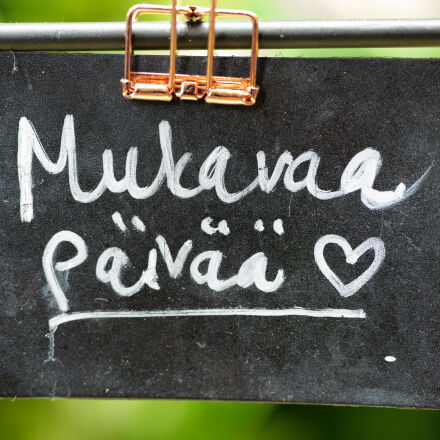 Mukavaa
päivää ♡